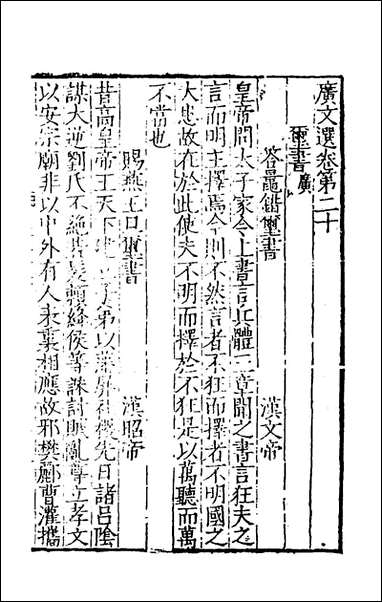 廣文選卷第二十
璽書廣
答鼂錯璽書 漢文帝
皇帝問太子家令上書言兵體三章聞之書言狂夫之
言而明主擇焉今則不然言者不狂而擇者不明國之
大患故在於此使夫不明而擇於不狂是以萬聽而萬
不當也
賜燕王旦璽書 漢昭帝
昔高皇帝王天下建立子弟以藩屏社稷先日諸呂陰
謀大逆劉氏不絶若髮賴絳侯等誅討賊亂尊立孝文
以安宗廟非以中外有人表裏相應故邪樊酈曹灌攜